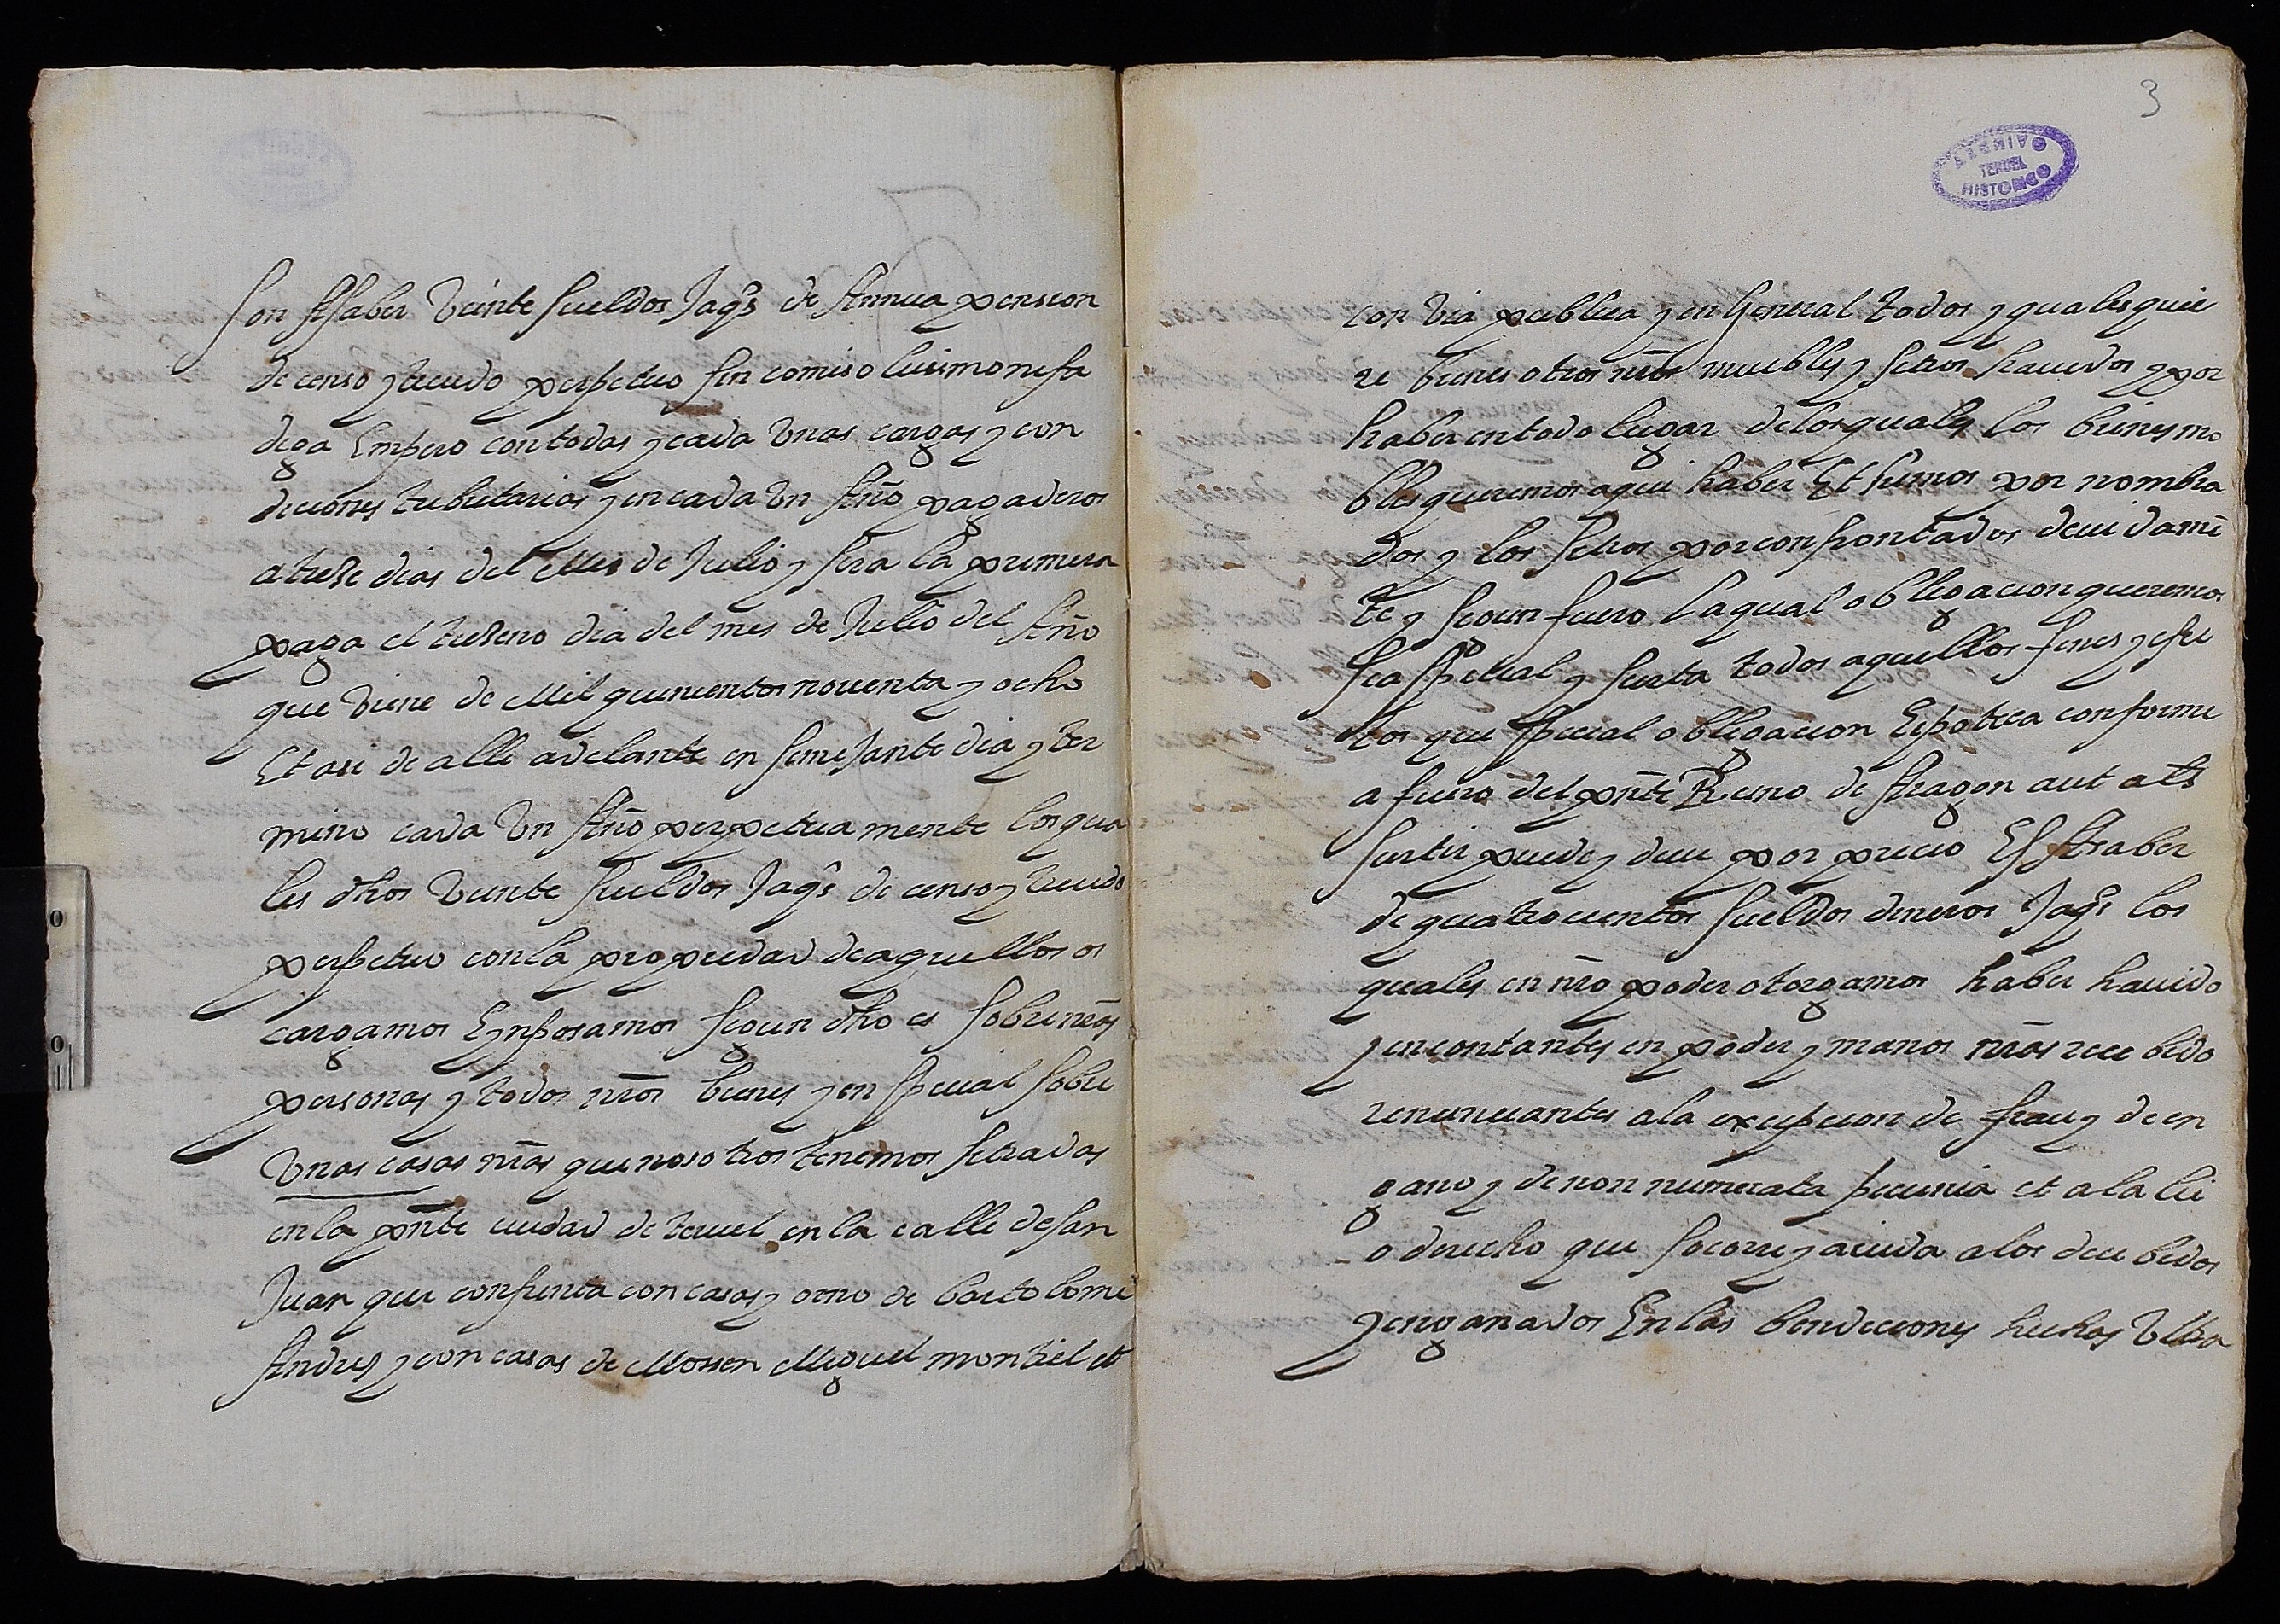 son Asaber Veinte sueldos Jaqs de Annua pension
de censo y treudo perpetuo sin comiso luismo ni fa
diga Empero con todas y cada Unas cargas y con
diciones tributarias y en cada Un Año pagaderos
a treze dias del Mes de Julio y sera la primera
paga el trezeno dia del mes de Julio del Año
que Viene de Mil quinientos noventa y ocho
Et asi de alli adelante en semejante dia y ter
mino cada Un Año perpetuamente los qua
les dhos Veinte sueldos Jaqs de censo y treudo
perpetuo con la propiedad de aquellos os
cargamos E ynposamos segun dho es sobre nras
personas y todos nros bienes y en special sobre
Unas casas nras que nosotros tenemos sitiadas
en la pnte ciudad de teruel en la calle de san
Juan que confrenta con casas y orno de bartolome
Andres y con casas de Mossen Miguel montiel et
3
TERUEL
HISTORICO
con Via publica y en General todos y qualesquie
re bienes otros nros muebles y sitios havidos y por
haber en todo lugar de los quales los bienes mo
bles queremos aqui haber Et hemos por nombra
dos y los sitios por confrontados devidamen
te y segun fuero la qual obligacion queremos
sea special y surta todos aquellos fines y efe
tos que special obligacion E ypoteca conforme
a fuero del pnte Reino de Aragon aut als
surtir puede y deve por precio Es Asaber
de quatrocientos sueldos dineros Jaqs los
quales en nro poder otorgamos haber havido
y en contantes en poder y manos nras recebido
renunciantes a la excepcion de frau y de en
gano y de non numerata pecunia et a la lei
o derecho que socorre y aiuda a los decebidos
y enganados En las bendiciones hechas Ultra